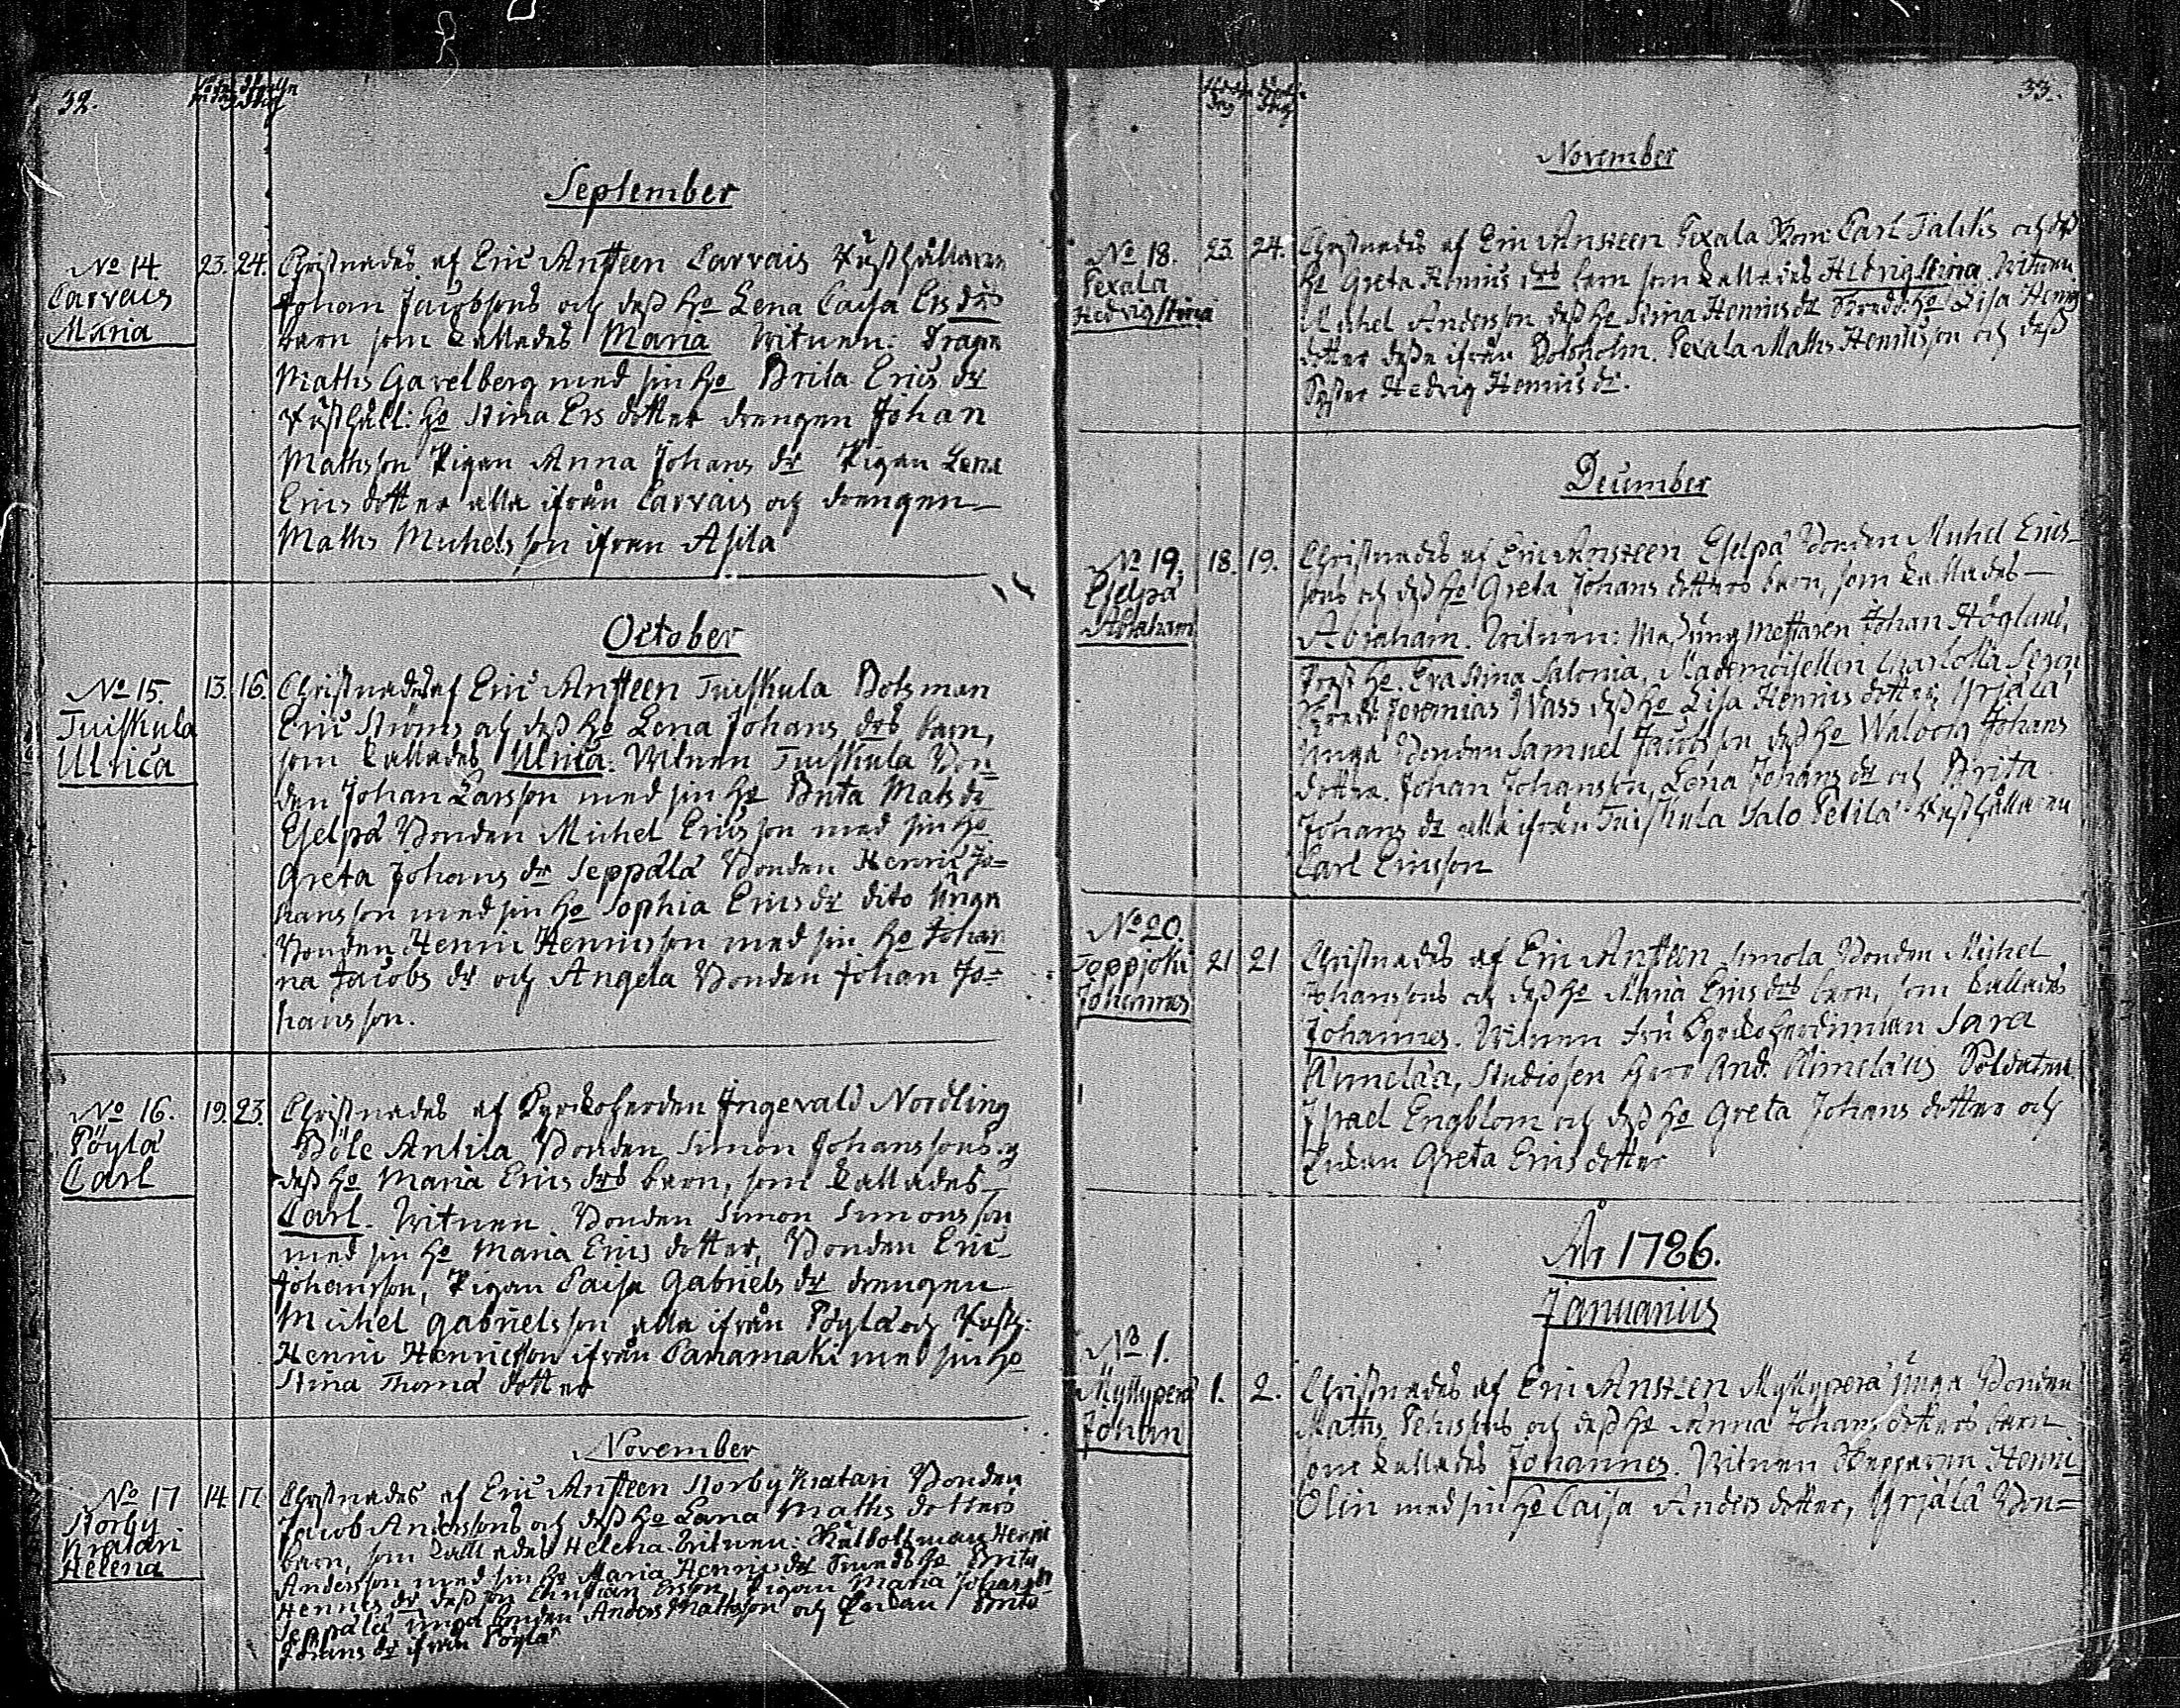 32.
September
No 14
Carvais
Maria
23. 24.
Christnades af Eric Ansteen Carvais Rusthållaren
Johan Jacobsons och dess ho Lena Caisa Ers drs
barn som kallades Maria Witnen: Dragn
Maths Gavelberg med sin ho Brita Erics dr
Rusthåll: ho Stina Ers dotter drengen Johan
Mathsson Pigan Anna Johans dr Pigan Lena
Erics dotter alla ifrån Carvais och drengen
Maths Michelsson ifrån Asila
October
No 15.
Tuiskula
Ulrica
13. 16.
Christnades af Eric Ansteen Tuiskula Botsman
Eric Ströms och dess ho Lena Johans drs barn,
som kallades Ulrica. Witnen Tuiskula Bon
den Johan Larsson med sin ho Brita Mats dr
Eselpä Bonden Michel Ericsson med sin ho
Greta Johans dr Seppälä Bonden Henric Jo=
hansson med sin ho Sophia Erics dr dito Unga
Bonden Henric Henricsson med sin ho Johan
na Jacobs dr och Angela Bonden Johan Jo=
hansson.
No 16.
Pöylä
Carl
19. 23.
Christnades af Kyrckoherden Ingevald Nordling
Böle Antila Bonden Simon Johanssons och
dess ho Maria Erics drs barn, som kallades
Carl. Witnen. Bonden Simon Simonsson
med sin ho Maria Erics dotter, Bonden Eric
Johansson, Pigan Caisa Gabriels dr drengen
Michel Gabrielsson alla ifrån Pöylä och Rusth:
Henric Henricsson ifrån Panamaki med sin ho
Stina Thoma dotter
November
No 17
Storby
Kratari
Helena
14. 17.
Christnades af Eric Ansteen Storby Kratari Bonden
Jacob Anderssons och dess ho Lena Maths dotters
barn, som kallades Helena. Witnen: Båtsman Henric
Andersson med sin ho Maria Henrics dr Smeds ho Brita
Henrics dr, dess son Christian Ersson, Pigan Maria Johans dr
Seppälä unga bonden Anders Mattsson och Pigan Brita
Johans dr ifrån Pöylä
33.
November
No 18.
Pexala
Hedvig Stina
23. 24.
Christnades af Eric Ansteen Pexala Skom: Carl Falcks och dess
ho Greta Henrics drs barn som kallades Hedvig Stina. Witnen
Michel Andersson dess ho Stina Henrics dr Skredd. ho Lisa Henrics
dotter desse ifrån Boxholm. Pexala Maths Henricsson och dess
Syster Hedvig Henrics dr.
December
No 19.
Eselpä
Abraham
18. 19.
Christnades af Eric Ansteen Eselpä Bonden Michel Erics-
sons och dess ho Greta Johans dotters barn, som kallades
Abraham. Witnen: Masung Mettaren Johan Höglund,
dess ho. Eva Stina Salonia, Mademoisellen Charlotta
Skredd. Jeremias Wass dess ho Lisa Henrics dotter, Yrjälä
Unga Bonden Samuel Jacobsson dess ho Walborg Johans
dotter. Johan Johansson, Lena Johans dr och Brita
Johans dr alla ifrån Tuiskula Salo Petilä Rusthållaren
Carl Ericsson
No 20.
Toppjoki
Johannes
21 21
Christnades af Eric Ansteen Simola Bonden Michel
Johanssons och dess ho Maria Erics drs barn, som kallades
Johannes. Witnen Fru Kyrckoherdinnan Sara
Rimelæa, Studiosen Herr And. Rimelæus Soldaten
Israel Engblom och dess ho Greta Johans dotter och
Pigan Greta Erics dotter
År 1786.
Januarius
No 1.
Myllyperä
Johan
1. 2.
Christnades af Eric Ansteen Myllyperä Unga Bonden
Maths och dess ho Anna Johans dotters barn
som kallades Johannes. Witnen Skepparen Henric
Olin med sin ho Caisa Anders dotter, Yrjälä Bon=